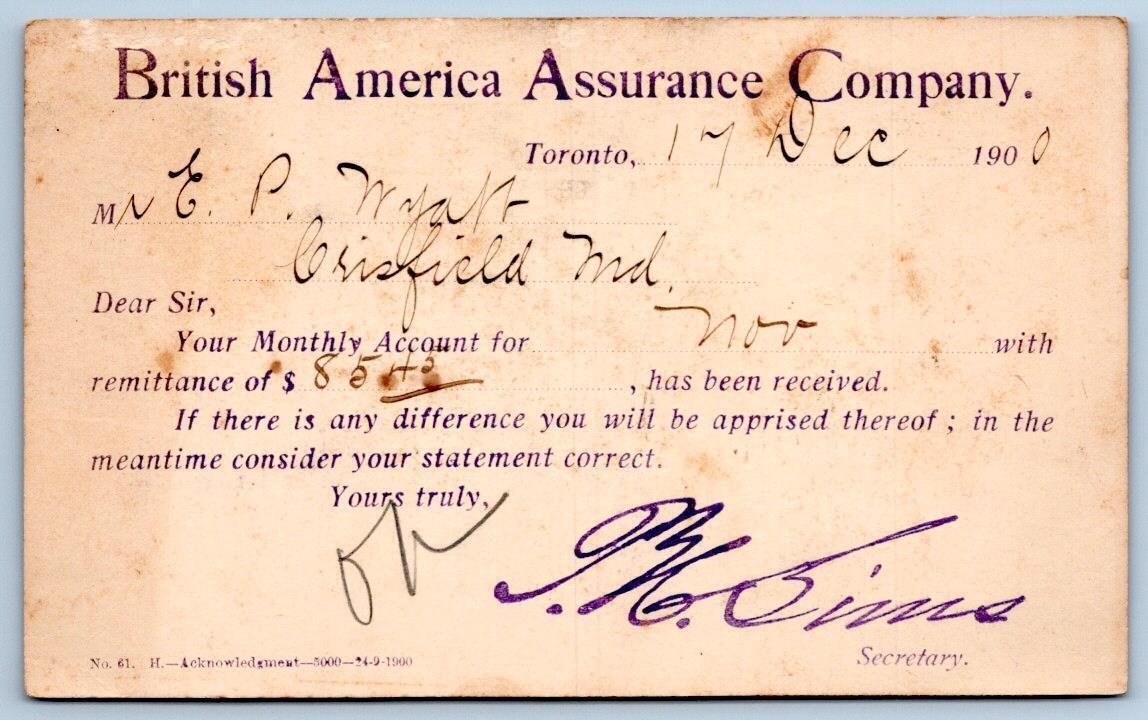 British America Assurance Company.
Toronto, 17 Dec 1900
Mr E. P. Wyatt
Crisfield Md.
Dear Sir,
Your Monthly Account for Nov with
remittance of $ 85 45, has been received.
If there is any difference you will be apprised thereof; in the
meantime consider your statement correct.
Yours truly,
ok
P. H. Sims
Secretary.
No. 61. H.—Acknowledgment—5000—24-9-1900